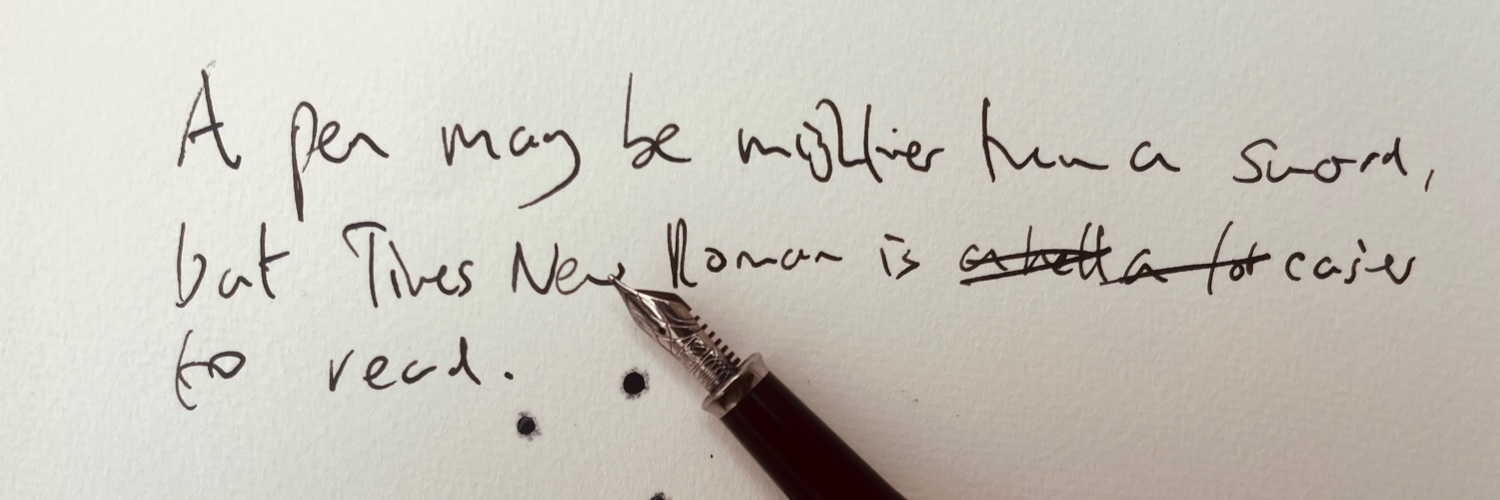 A pen may be mightier than a sword,
but Times New Roman is a hell a lot easier
to read.